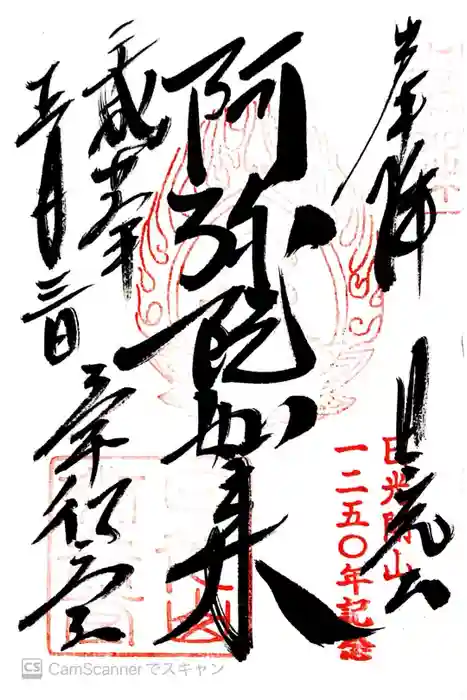 奉拝
日光山
日光開山
一二五〇年記念
阿弥陀如来
平成
五月三日
常行堂
CS CamScannerでスキャン